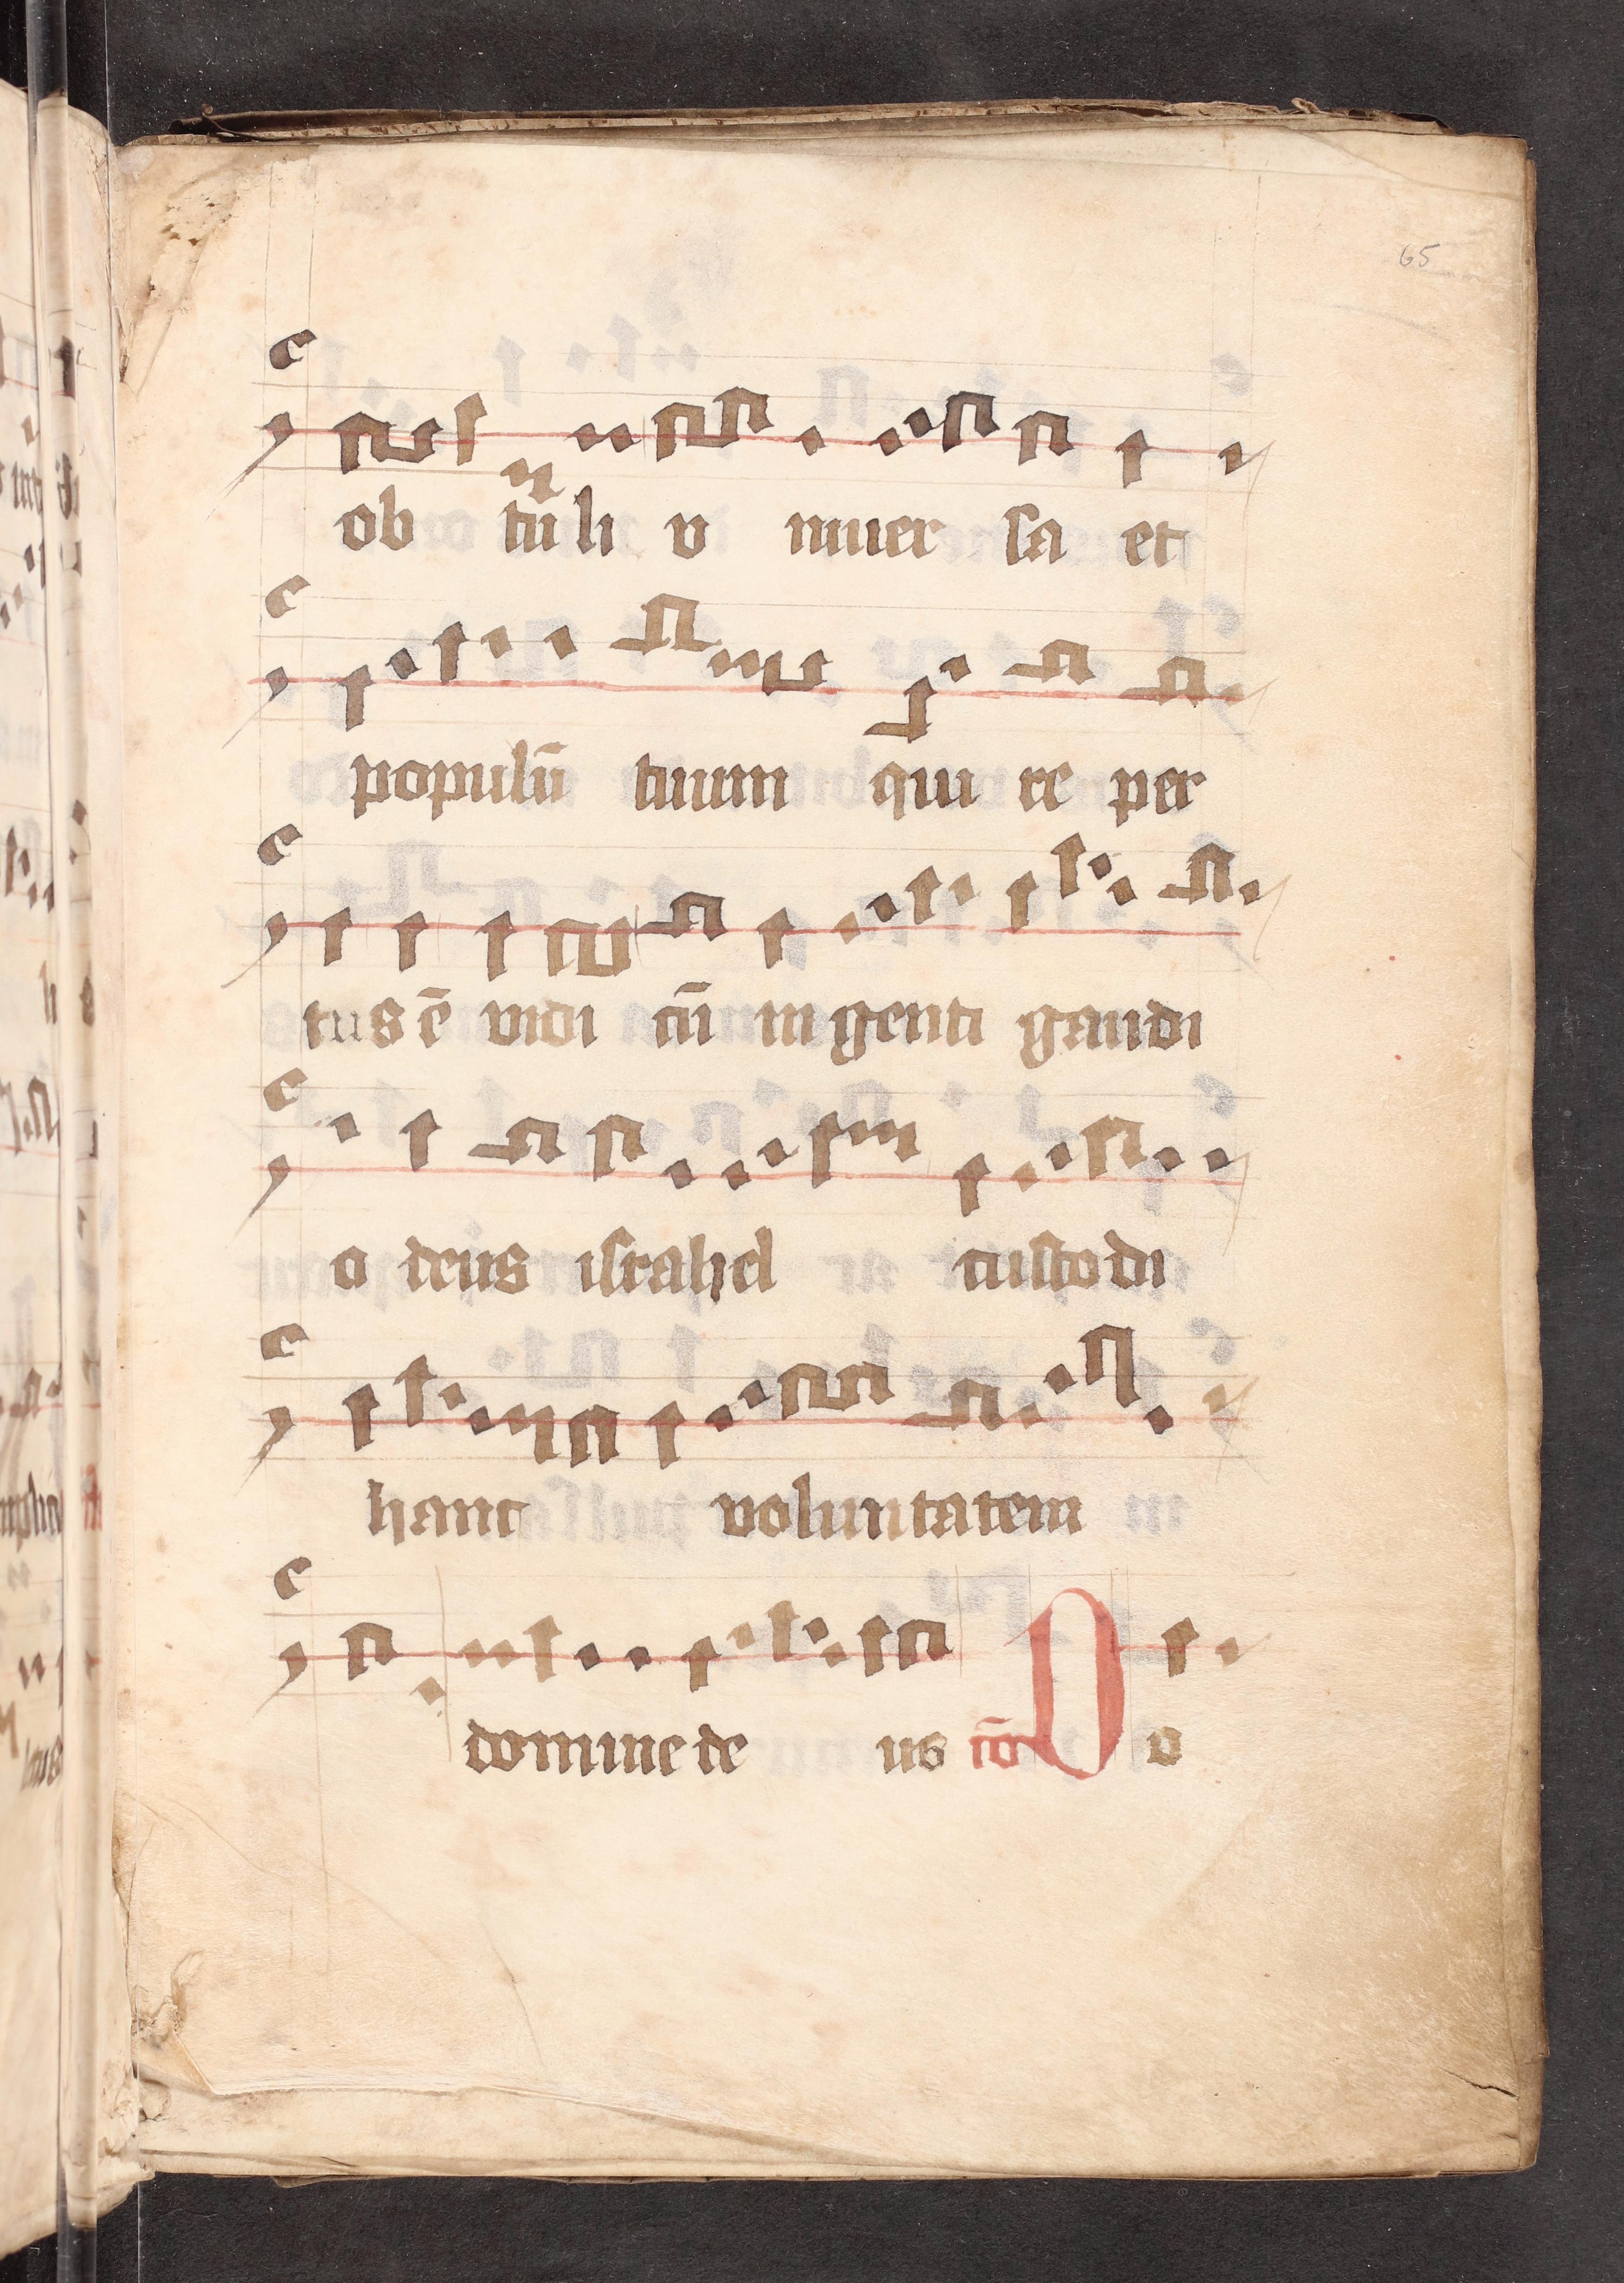 65
ob tuli v niuer sa et
populū tuum qui re per
tus ē vidi cū in genti gaudi
o deus israhel custodi
hanc voluntatem
domine de us cō D o